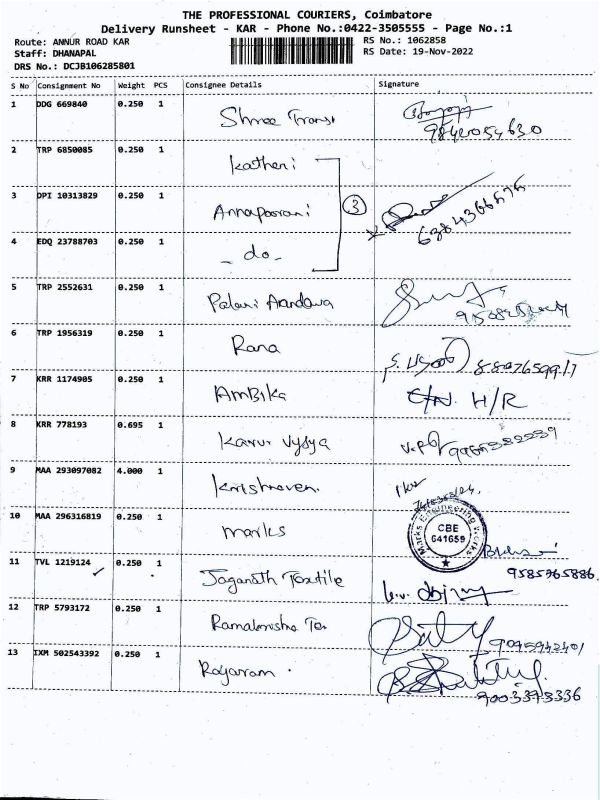 THE PROFESSIONAL COURIERS, Coimbatore
Delivery Runsheet - KAR - Phone No.:0422-3505555 - Page No.:1
Route: ANNUR ROAD KAR
RS No.: 1062858
Staff: DHANAPAL
RS Date: 19-Nov-2022
DRS No.: DCJB106285801
S No Consignment No Weight PCS Consignee Details Signature
1 DDG 669840 0.250 1 Shree Trans
9842054630
2 TRP 6850085 0.250 1 Katheri
3 DPI 10313829 0.250 1 Annapoorani 3
6384366575
4 EDQ 23788703 0.250 1 - do -
5 TRP 2552631 0.250 1 Palani Aandava
6 TRP 1956319 0.250 1 Rana
7 KRR 1174905 0.250 1 AmBika H/R
8 KRR 778193 0.695 1 Karur Vysya
9 MAA 293097082 4.000 1 Krishnaveni
10 MAA 296316819 0.250 1 Marks
Marks Engineering Works
CBE
641659
11 TVL 1219124 0.250 1 Jaganath Textile
9585765886
12 TRP 5793172 0.250 1 Ramakrishna Tex
9095942401
13 IXM 502543392 0.250 1 Rajaram
9003373336